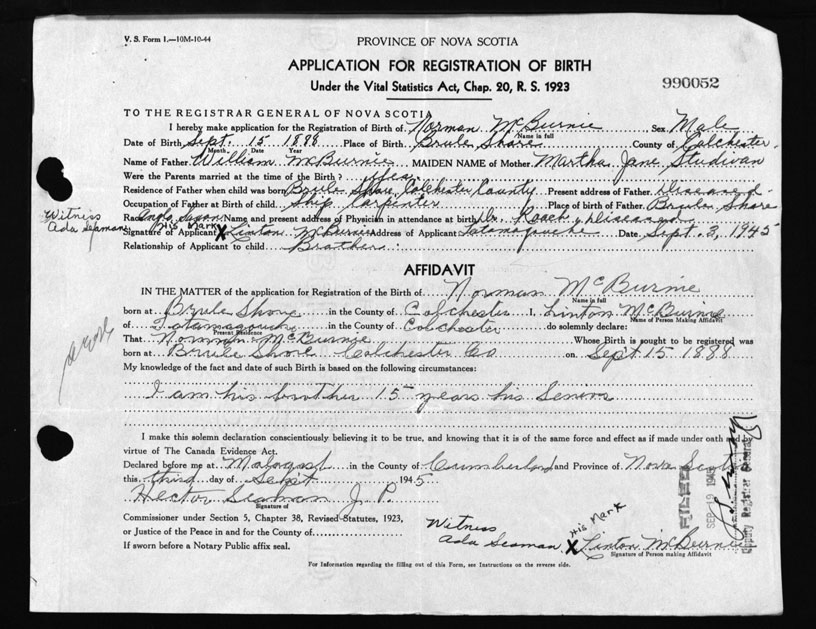 V. S. Form 1.—10M-10-44
PROVINCE OF NOVA SCOTIA
APPLICATION FOR REGISTRATION OF BIRTH
Under the Vital Statistics Act, Chap. 20, R. S. 1923
990052
TO THE REGISTRAR GENERAL OF NOVA SCOTIA
I hereby make application for the Registration of Birth of Norman McBurnie Sex Male
Name in full
Date of Birth Sept. 15 1888 Place of Birth Brule Shore County of Colchester
Month Date Year
Name of Father William McBurnie MAIDEN NAME of Mother Martha Jane Studivan
Were the Parents married at the time of the Birth? yes
Residence of Father when child was born Brule Shore, Colchester County Present address of Father diseased
Occupation of Father at Birth of child Ship Carpenter Place of birth of Father Brule Shore
Witness
Ada Seaman
Race Anglo Saxon Name and present address of Physician in attendance at birth Dr. Roach diseased
His Mark
Signature of Applicant X Linton McBurnie Address of Applicant Tatamagouche Date Sept. 3, 1945
Relationship of Applicant to child Brother
AFFIDAVIT
IN THE MATTER of the application for Registration of the Birth of Norman McBurnie
Name in full
born at Brule Shore in the County of Colchester I, Linton McBurnie
Name of Person Making Affidavit
of Tatamagouche in the County of Colchester do solemnly declare:
Present Residence
That Norman McBurnie Whose Birth is sought to be registered was
born at Brule Shore Colchester Co on Sept 15 1888
My knowledge of the fact and date of such Birth is based on the following circumstances:
I am his brother 15 years his Senior
I make this solemn declaration conscientiously believing it to be true, and knowing that it is of the same force and effect as if made under oath and by
virtue of The Canada Evidence Act.
Declared before me at Malagash in the County of Cumberland and Province of Nova Scotia
this third day of Sept 1945
Hector Seaman J. P.
Signature of
Commissioner under Section 5, Chapter 38, Revised Statutes, 1923,
or Justice of the Peace in and for the County of
If sworn before a Notary Public affix seal.
Witness
Ada Seaman
His Mark
X Linton McBurnie
Signature of Person making Affidavit
FILED
SEP 19
Deputy Registrar General
For Information regarding the filling out of this Form, see Instructions on the reverse side.